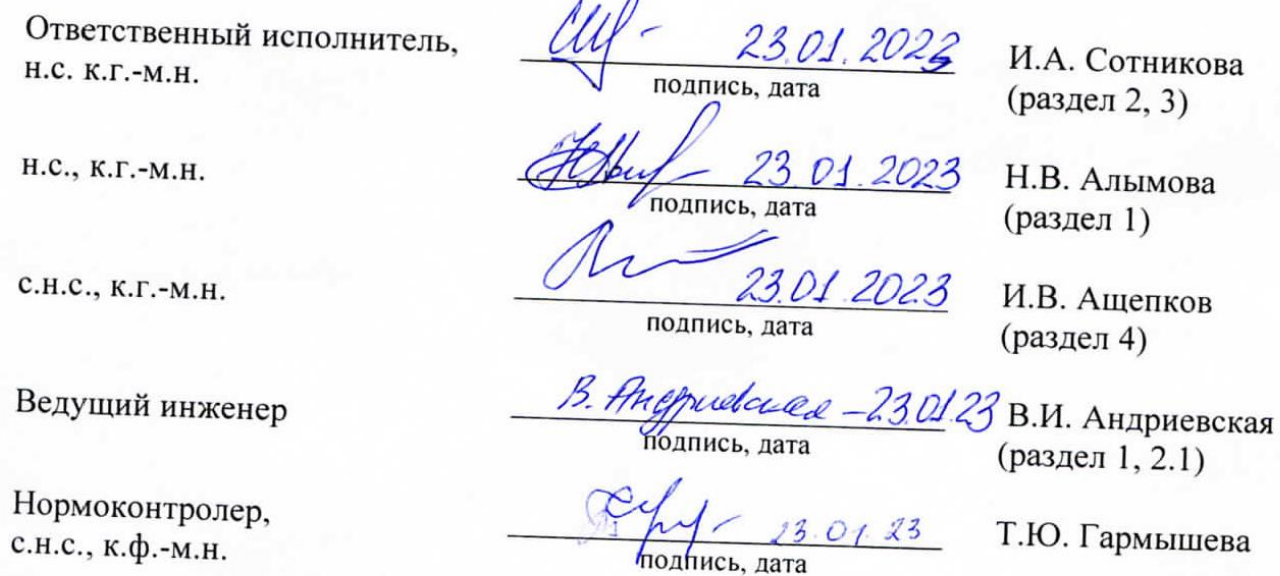 Ответственный исполнитель,
н.с. к.г.-м.н.
23.01.2023
подпись, дата
И.А. Сотникова
(раздел 2, 3)
н.с., к.г.-м.н.
23.01.2023
подпись, дата
Н.В. Алымова
(раздел 1)
с.н.с., к.г.-м.н.
23.01.2023
подпись, дата
И.В. Ащепков
(раздел 4)
Ведущий инженер
В. Андриевская – 23.01.23
подпись, дата
В.И. Андриевская
(раздел 1, 2.1)
Нормоконтролер,
с.н.с., к.ф.-м.н.
23.01.23
подпись, дата
Т.Ю. Гармышева